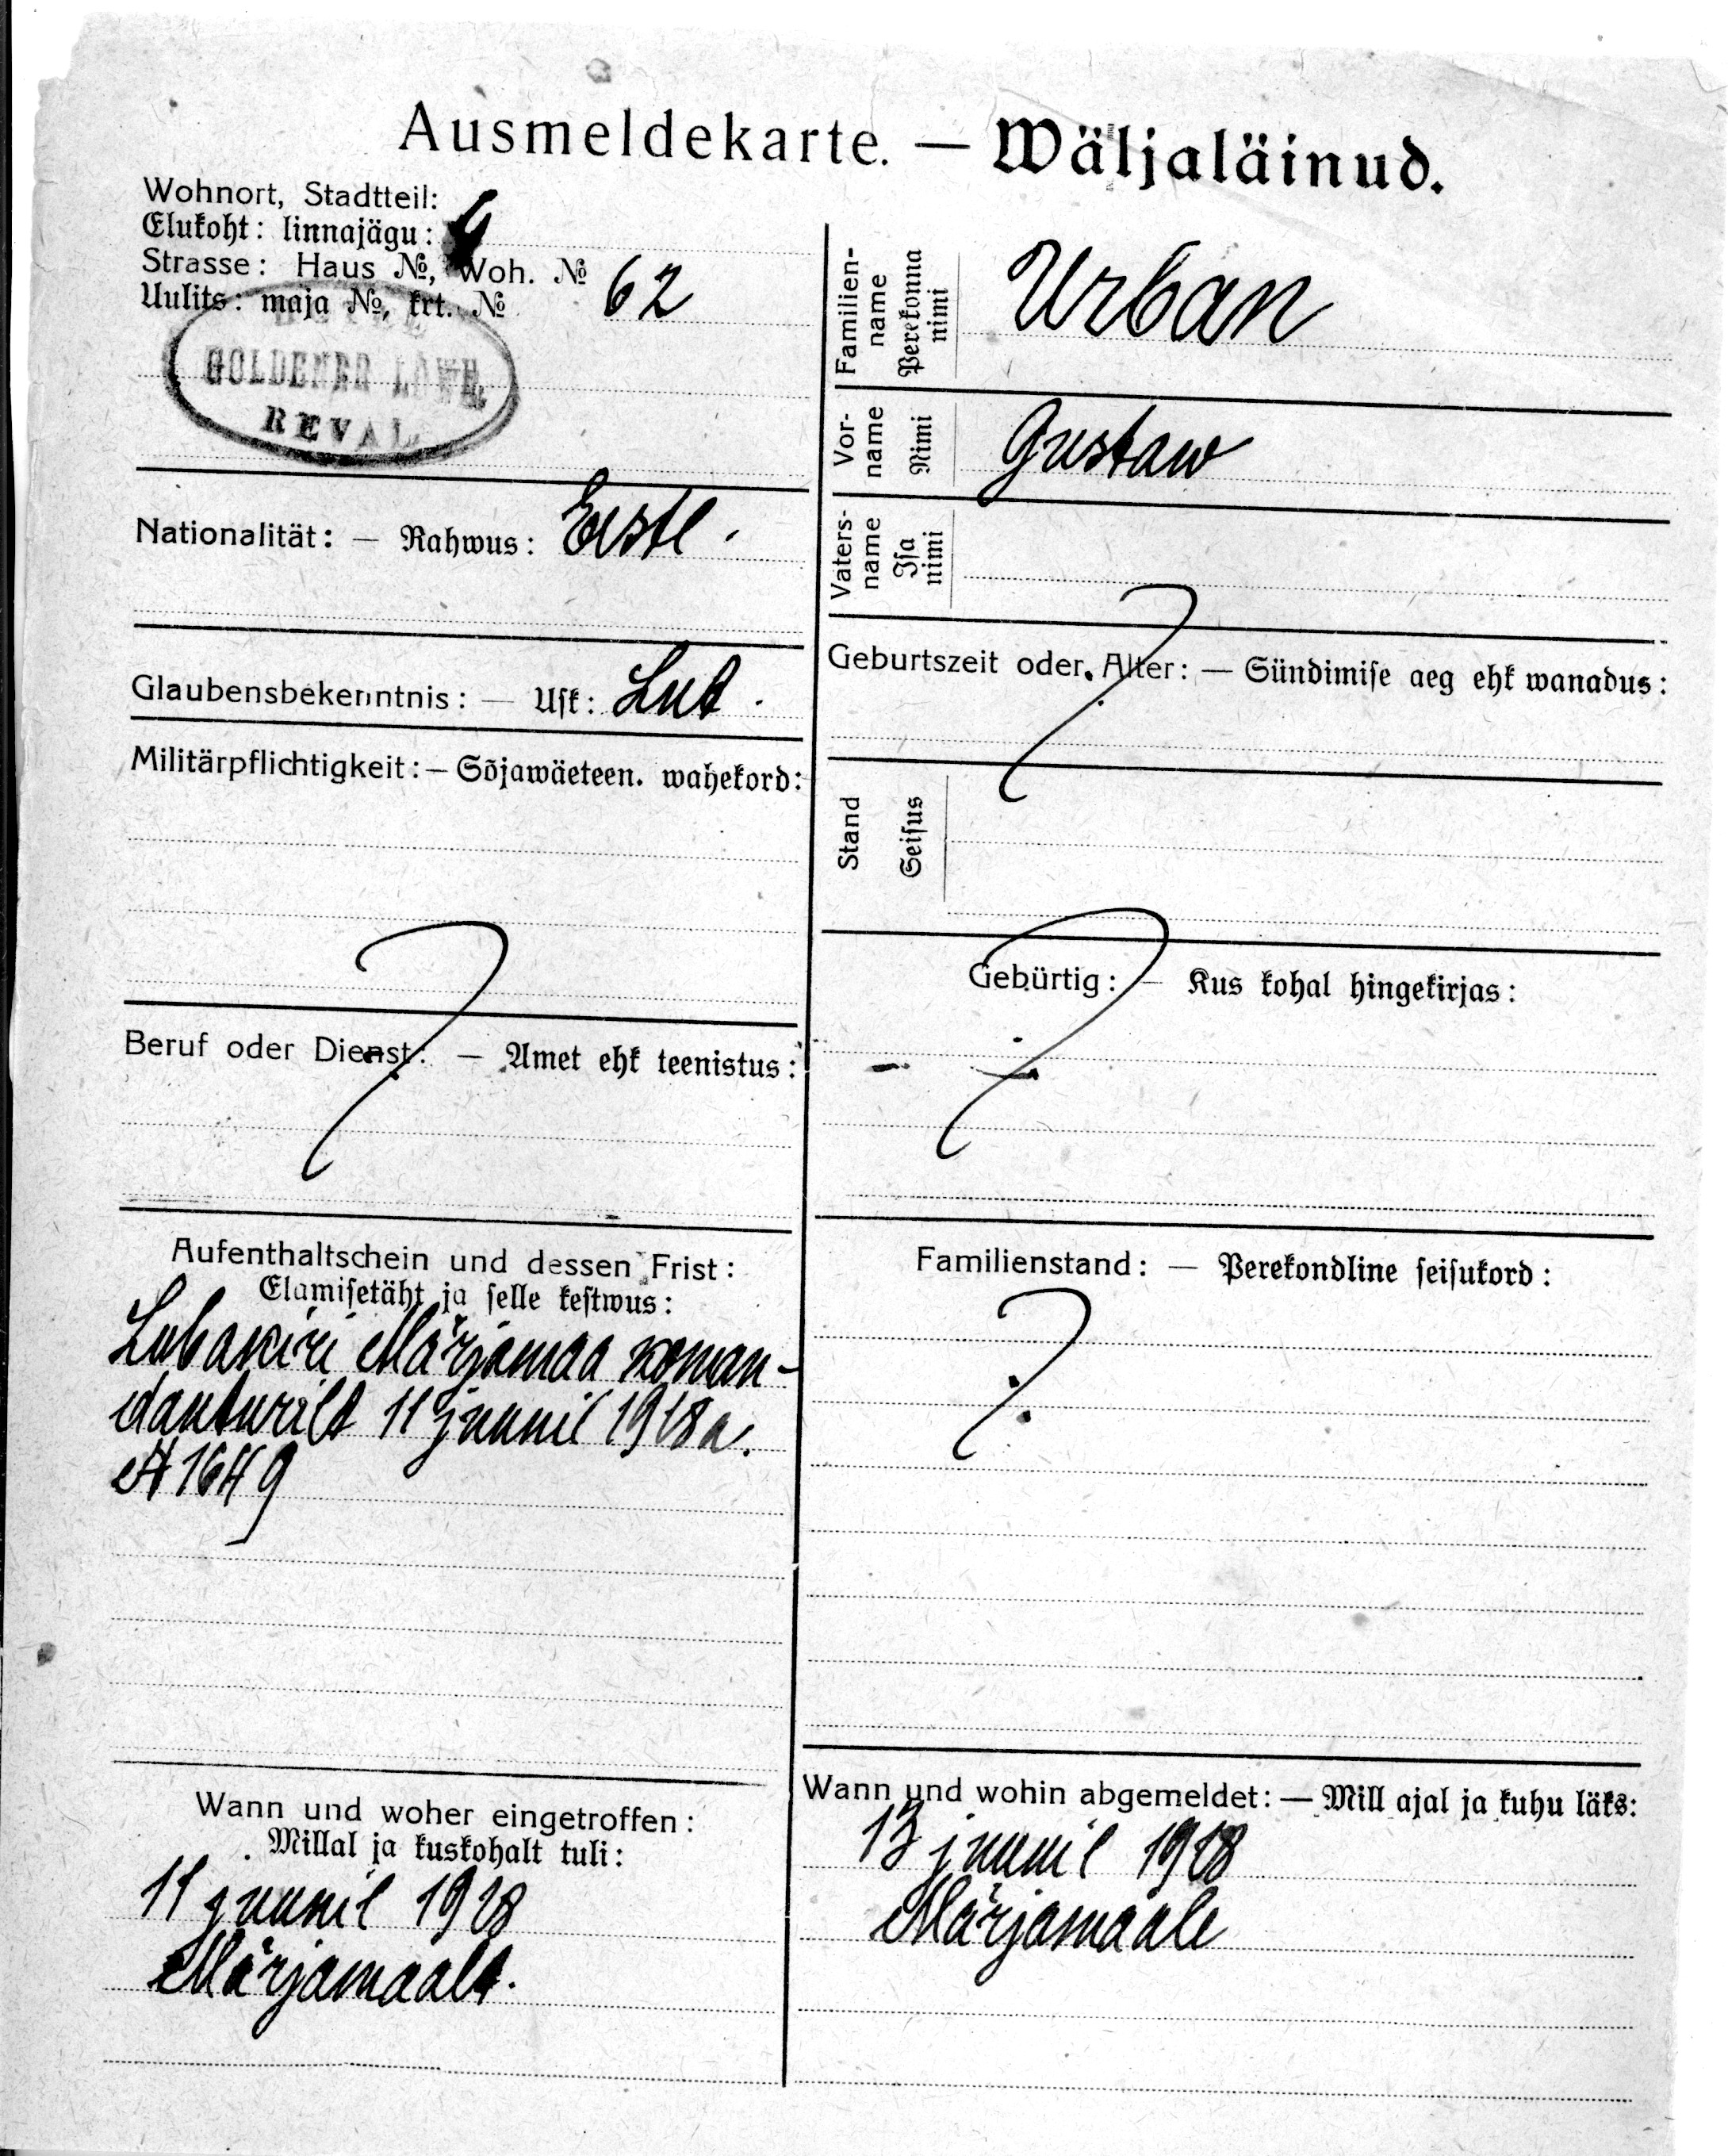 Ausmeldekarte. — Wäljaläinud.
Wohnort, Stadtteil:
Elukoht: linnajägu:
Strasse: Haus №, Woh. №
Uulits: maja №, krt. №
62
GOLDENER LÖWE
REVAL
Nationalität: — Rahwus: Eestl.
Glaubensbekenntnis: — Usk: Lut.
Militärpflichtigkeit: — Sõjawäeteen. wahekord:
?
Beruf oder Dienst: — Amet ehk teenistus:
Aufenthaltschein und dessen Frist:
Elamisetäht ja selle kestwus:
Lubakiri Märjamaa koman-
dantwrilt 11 juunil 1918 a.
№ 1649
Wann und woher eingetroffen:
Millal ja kuskohalt tuli:
11 juunil 1918
Märjamaalt.
Familien-
name
Perekonna
nimi
Urban
Vor-
name
Nimi
Gustaw
Vaters-
name
Isa
nimi
?
Geburtszeit oder Alter: — Sündimise aeg ehk wanadus:
Stand
Seisus
?
Gebürtig: — Kus kohal hingekirjas:
Familienstand: — Perekondline seisukord:
?
Wann und wohin abgemeldet: — Mill ajal ja kuhu läks:
13 juunil 1918
Märjamaale